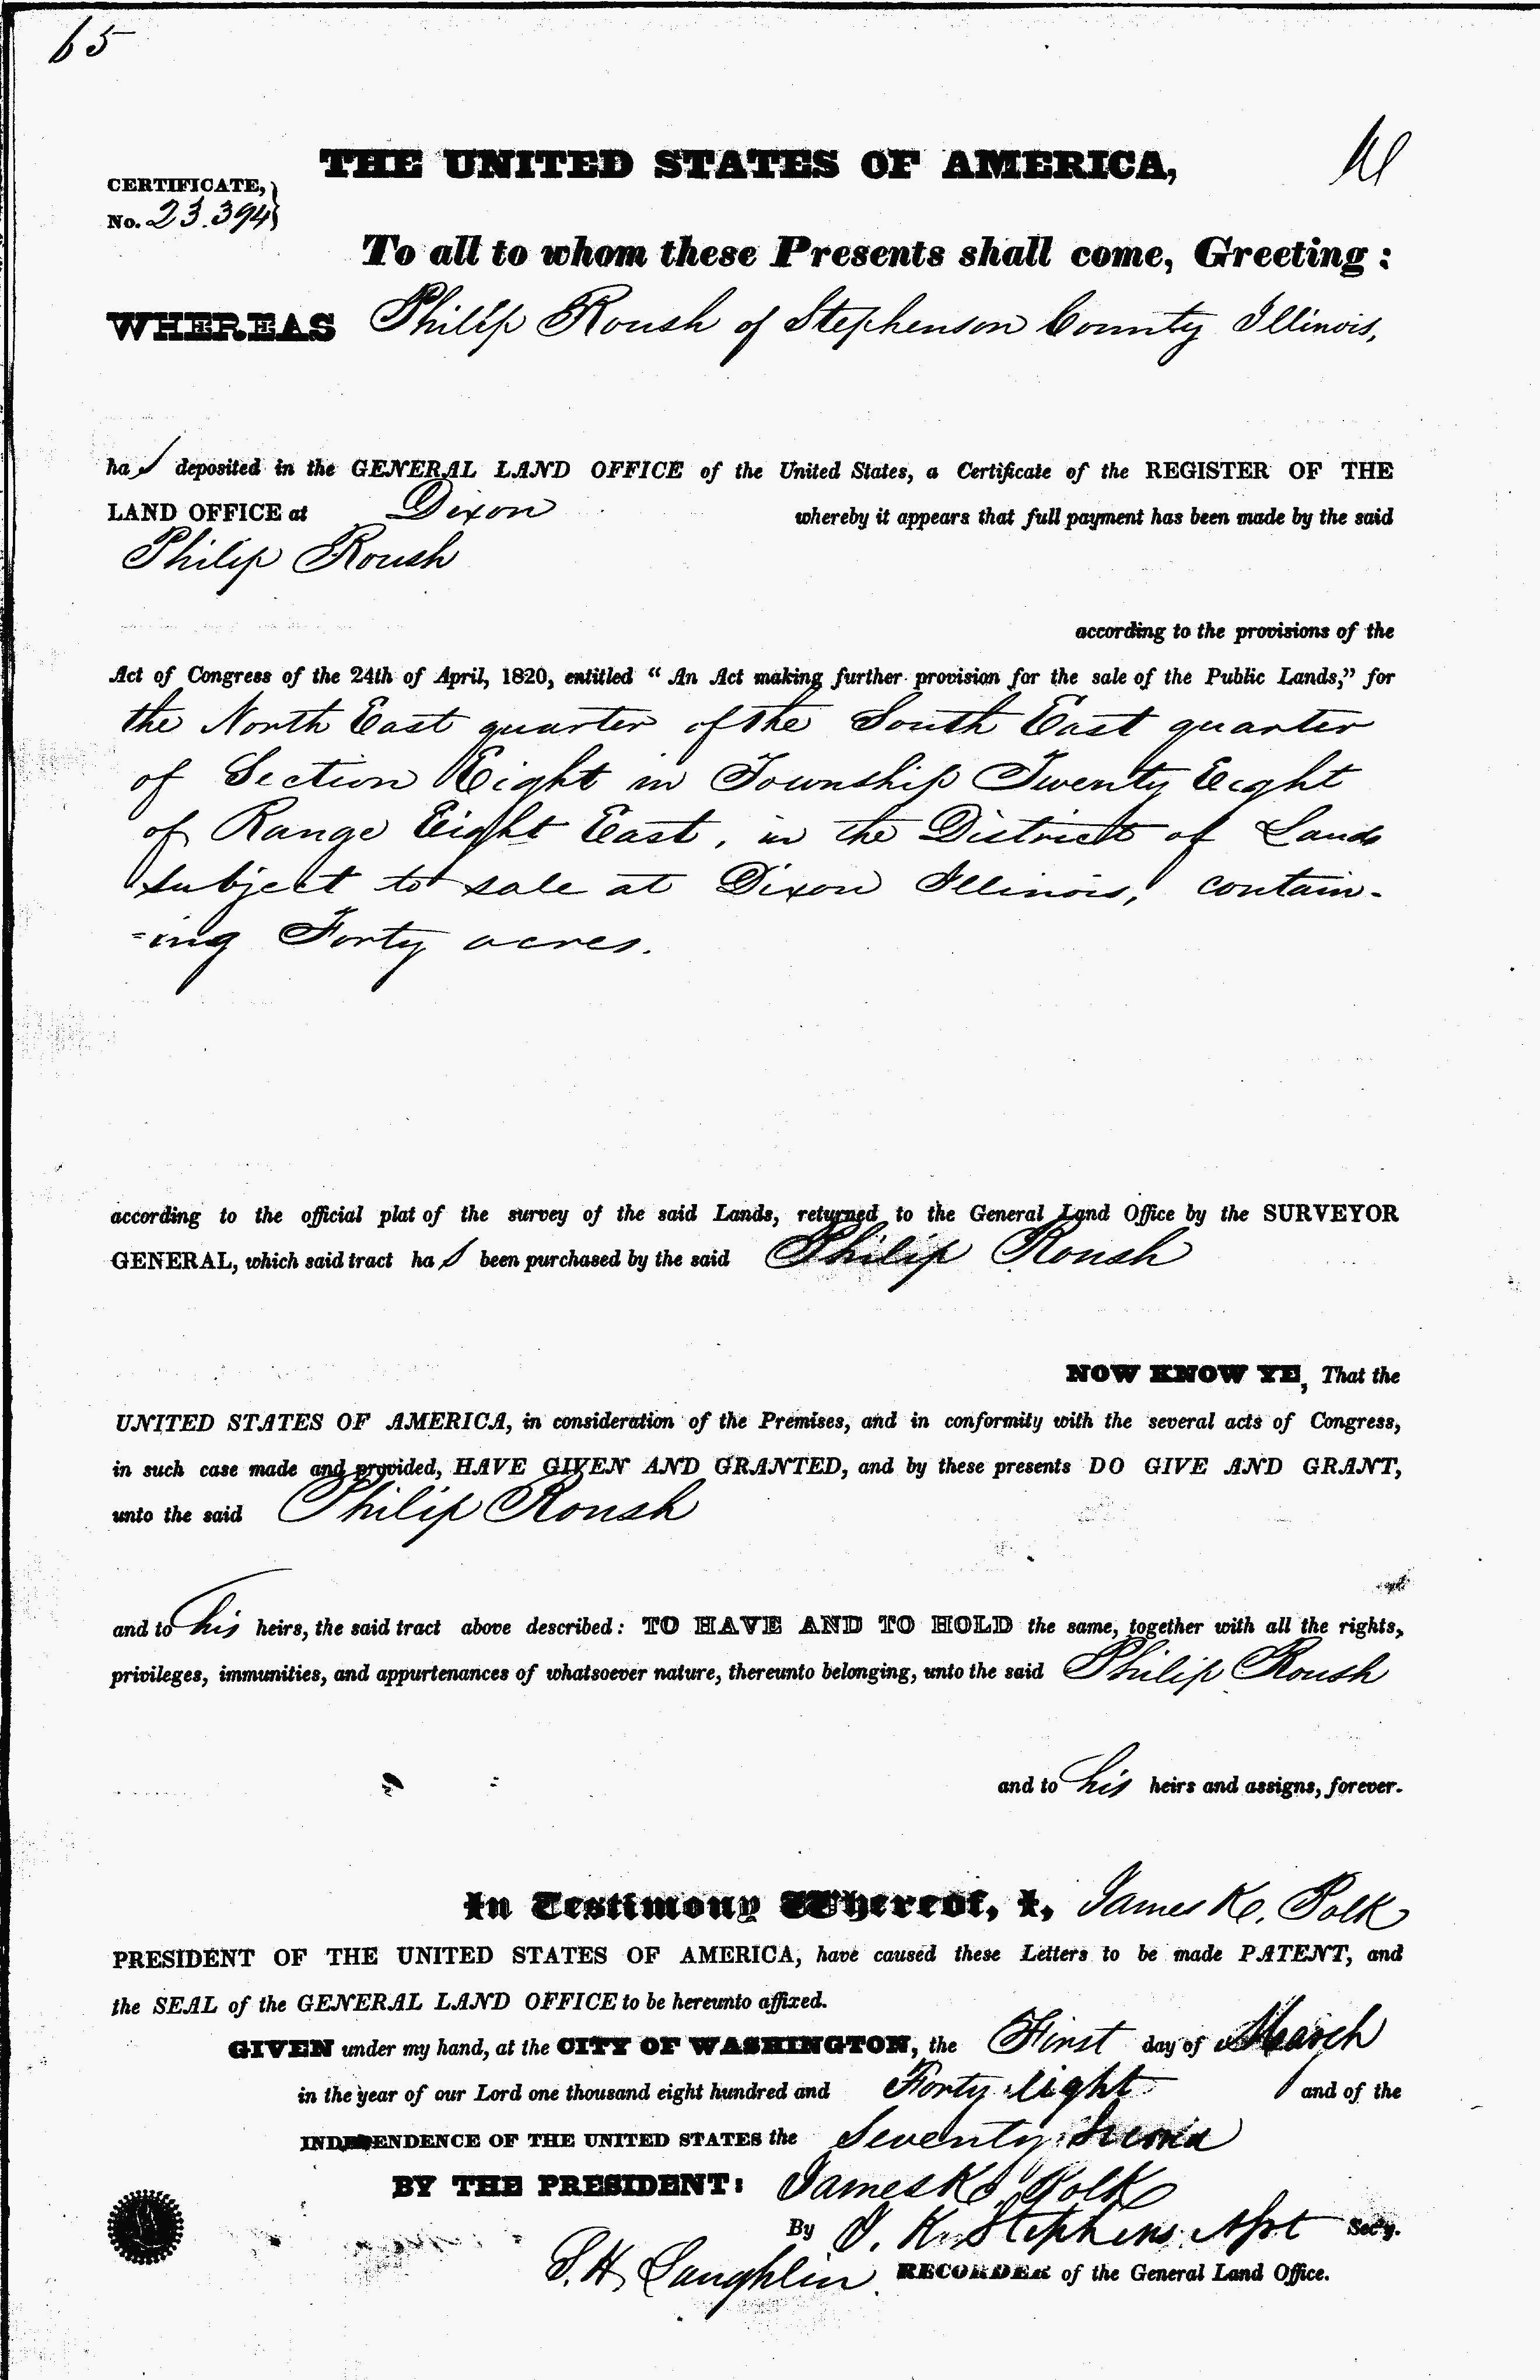 65
THE UNITED STATES OF AMERICA,
CERTIFICATE,
No. 23.394
To all to whom these Presents shall come, Greeting:
WHEREAS Philip Roush of Stephenson County Illinois,
has deposited in the GENERAL LAND OFFICE of the United States, a Certificate of the REGISTER OF THE
LAND OFFICE at Dixon whereby it appears that full payment has been made by the said
Philip Roush
according to the provisions of the
Act of Congress of the 24th of April, 1820, entitled “An Act making further provision for the sale of the Public Lands,” for
the North East quarter of the South East quarter
of Section Eight in Township Twenty Eight
of Range Eight East, in the District of Lands
subject to sale at Dixon Illinois, contain-
=ing Forty acres.
according to the official plat of the survey of the said Lands, returned to the General Land Office by the SURVEYOR
GENERAL, which said tract has been purchased by the said Philip Roush
NOW KNOW YE, That the
UNITED STATES OF AMERICA, in consideration of the Premises, and in conformity with the several acts of Congress,
in such case made and provided, HAVE GIVEN AND GRANTED, and by these presents DO GIVE AND GRANT,
unto the said Philip Roush
and to his heirs, the said tract above described: TO HAVE AND TO HOLD the same, together with all the rights,
privileges, immunities, and appurtenances of whatsoever nature, thereunto belonging, unto the said Philip Roush
and to his heirs and assigns, forever.
In Testimony Whereof, I, James K. Polk
PRESIDENT OF THE UNITED STATES OF AMERICA, have caused these Letters to be made PATENT, and
the SEAL of the GENERAL LAND OFFICE to be hereunto affixed.
GIVEN under my hand, at the CITY OF WASHINGTON, the First day of March
in the year of our Lord one thousand eight hundred and Forty eight and of the
INDEPENDENCE OF THE UNITED STATES the Seventy Second
BY THE PRESIDENT: James K. Polk
By J. K. Stephens Asst Sec'y.
S. H. Laughlin RECORDER of the General Land Office.